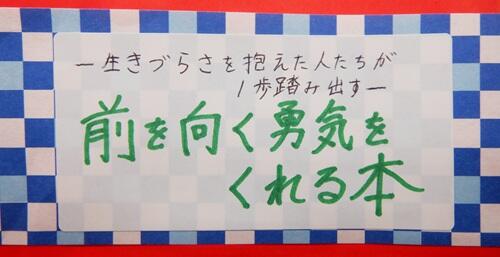 ―生きづらさを抱えた人たちが
1歩踏み出す―
前を向く勇気を
くれる本